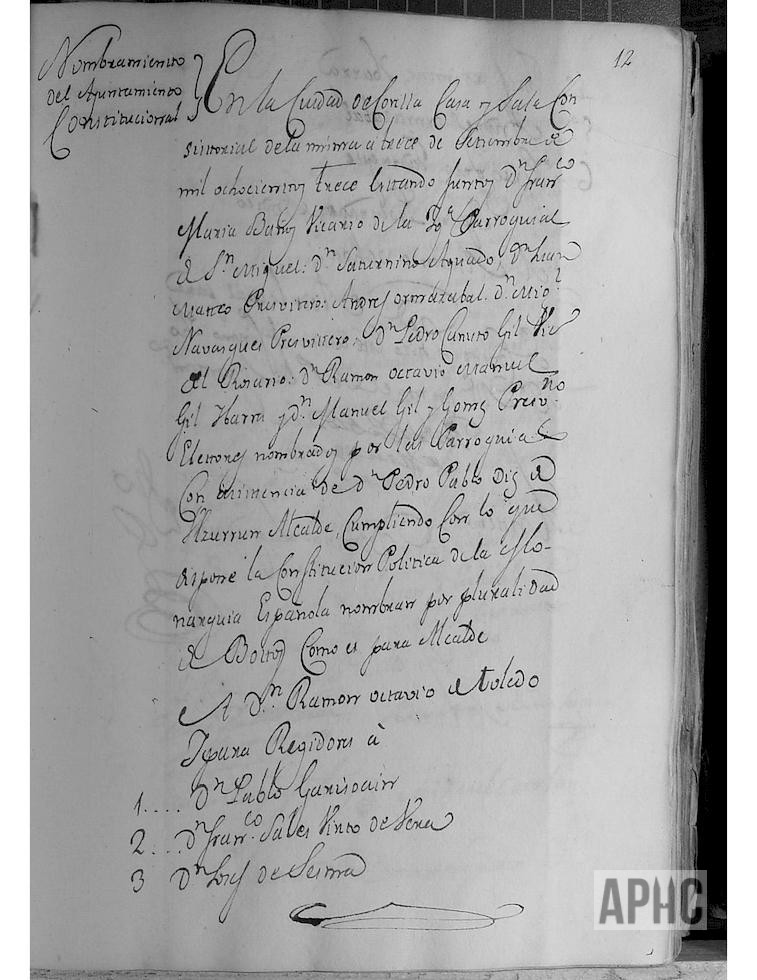 12
Nombramiento
del Ayuntamiento
Constitucional
En la Ciudad de Corella Casa y Sala Con
sistorial de la misma a trece de Setiembre de
mil ochocientos trece estando juntos Dn Franco
Maria Baños Vicario de la Iga Parroquial
de Sn Miguel: Dn Saturnino Aguado, Dn Juan
Matteo Presvitero: Andres Ormazabal: Dn Migl
Navasques Presvitero: Dn Pedro Canuto Gil Vic
del Rosario: Dn Ramon Octavio Manuel
Gil Ybarra y Dn Manuel Gil y Gomez Presvno
Electores nombrados por las Parroquias
Con asistencia de Dn Pedro Pablo Diez de
Ulzurrun Alcalde, Cumpliendo Con lo que
dispone la Constitucion Politica de la Mo-
narquia Española nombran por pluralidad
de Bottos Como es para Alcalde
A Dn Ramon Octavio de Toledo
Y para Regidores à
1.... Dn Pablo Garisoain
2... Dn Franco Sales Virto de Vera
3 Dn José de Sesma
APHC